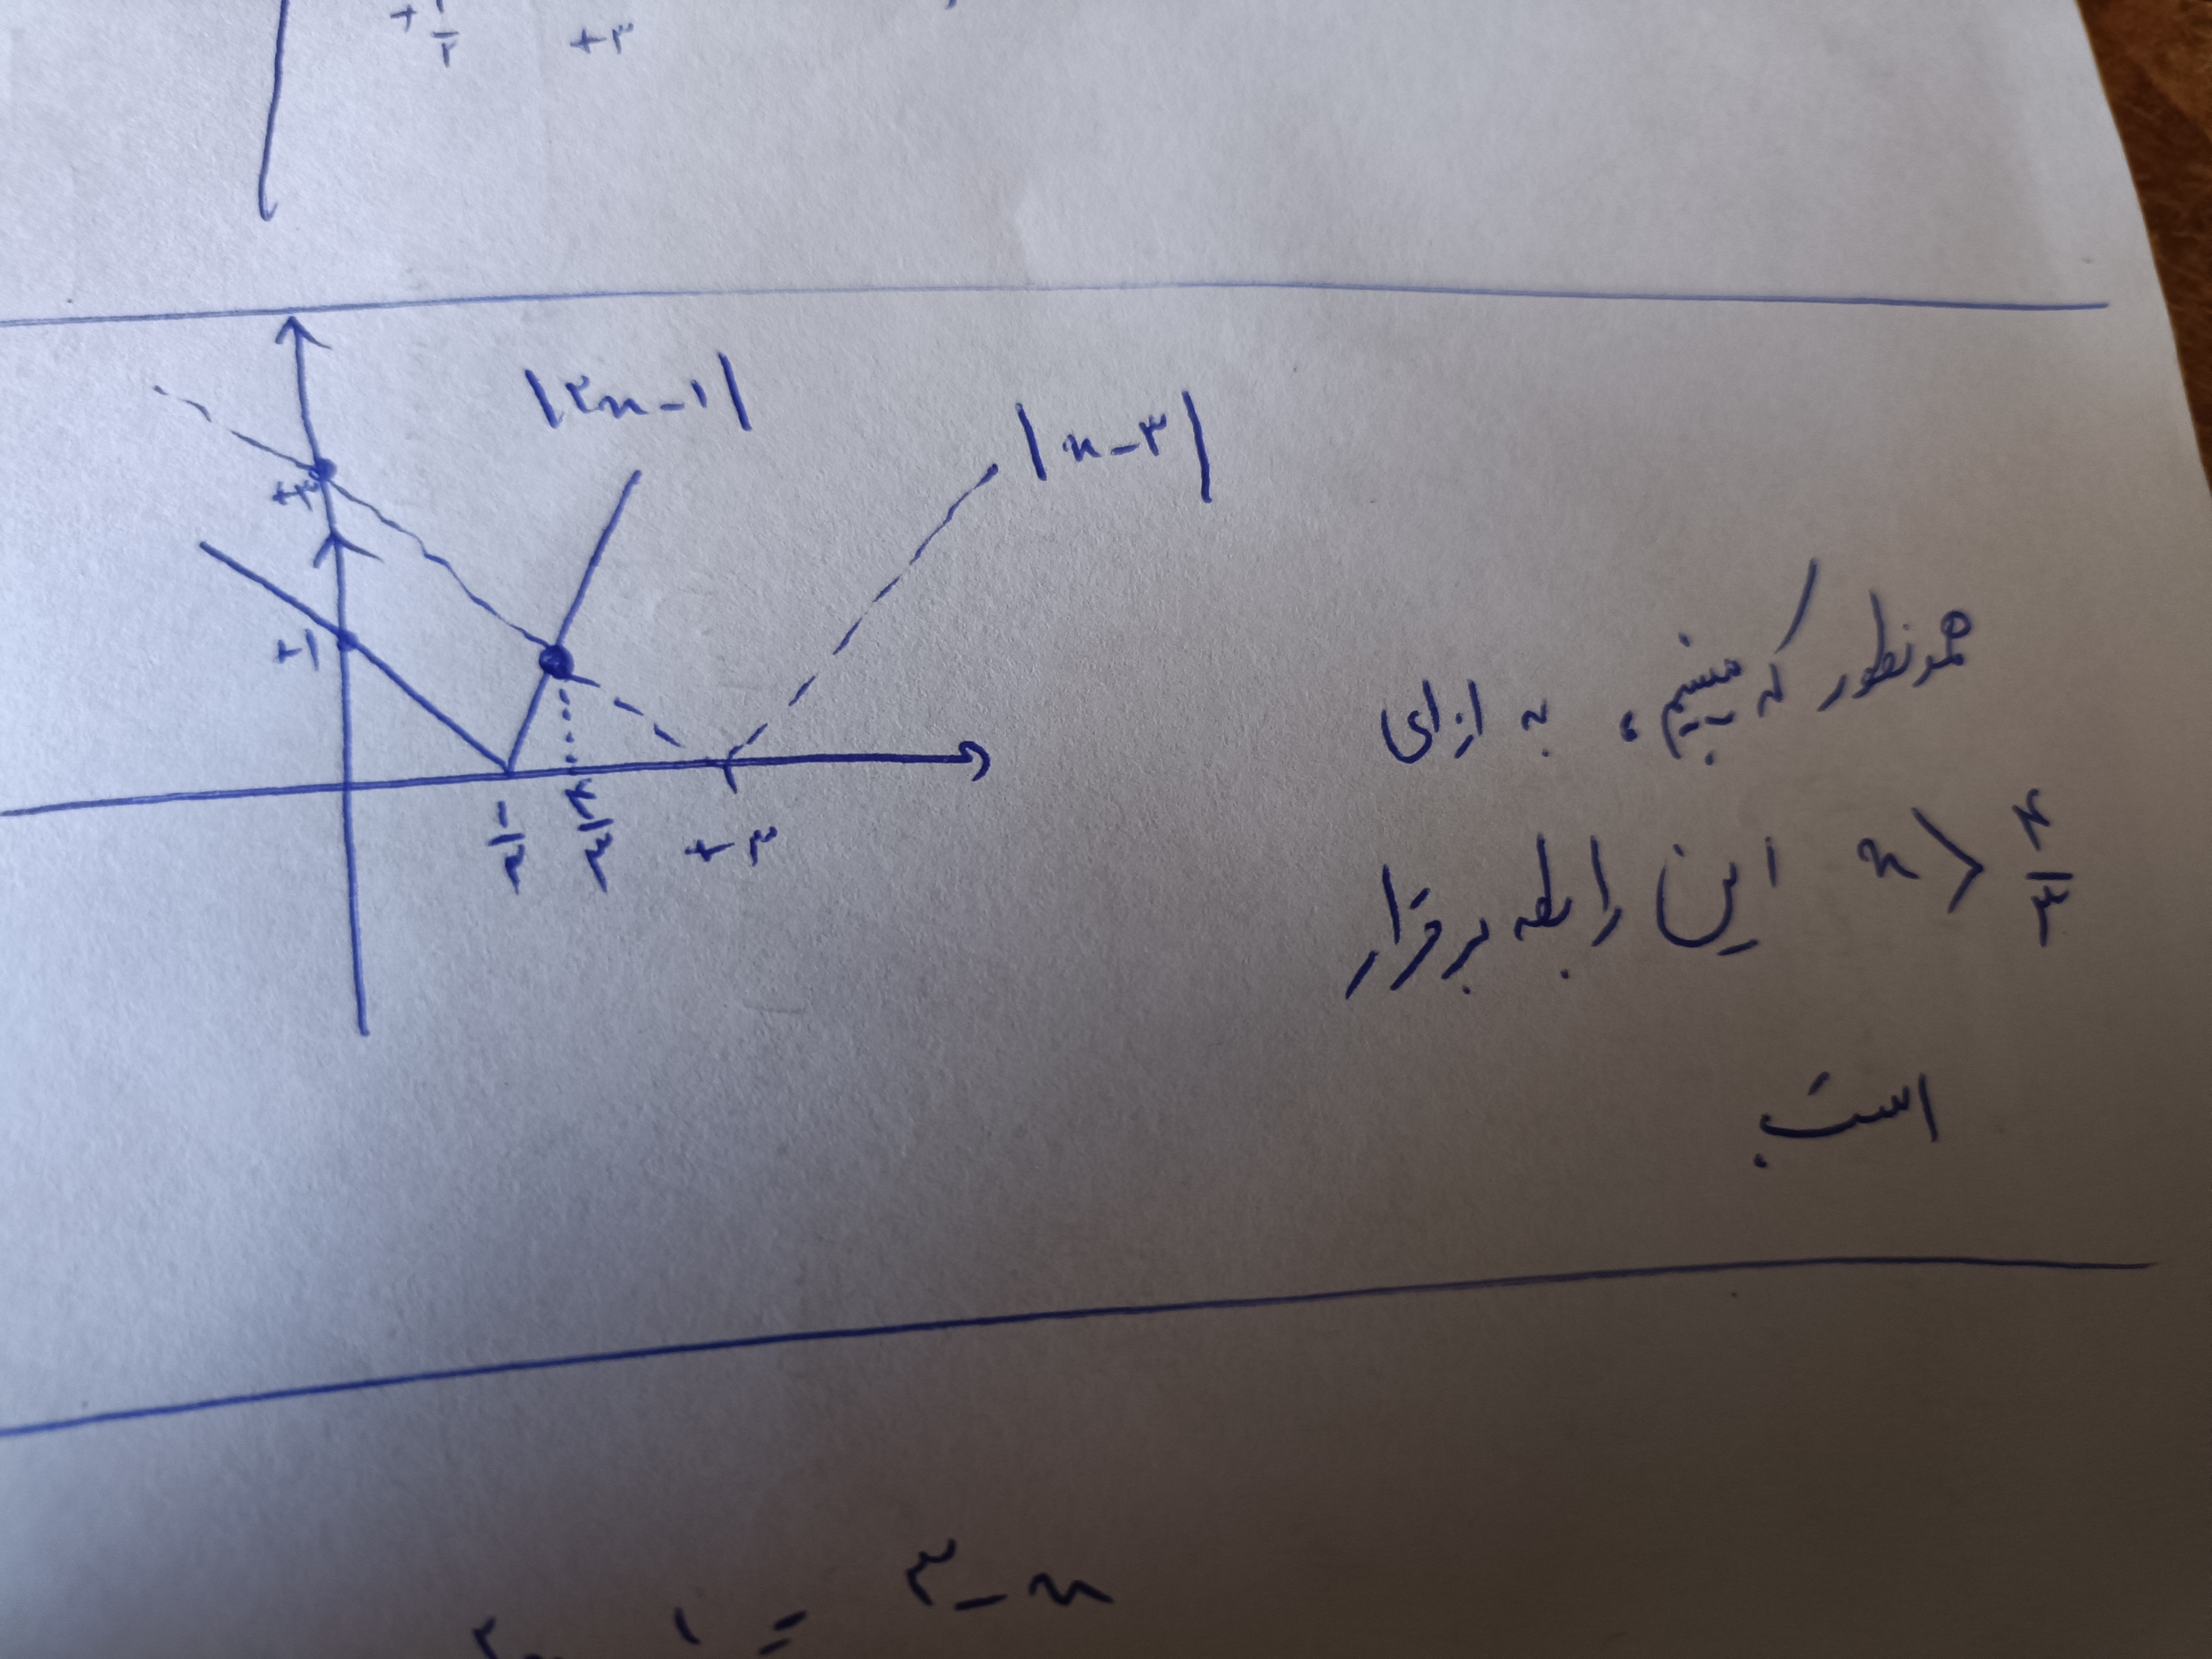 + ۱/۲ +۳
|۲x-۱|
|x-۳|
+۳
+۱
۱/۲ ۴/۳ +۳
همونطور که میبینیم، به ازای
x > ۴/۳ این رابطه برقرار
است
۱ = ۳-x